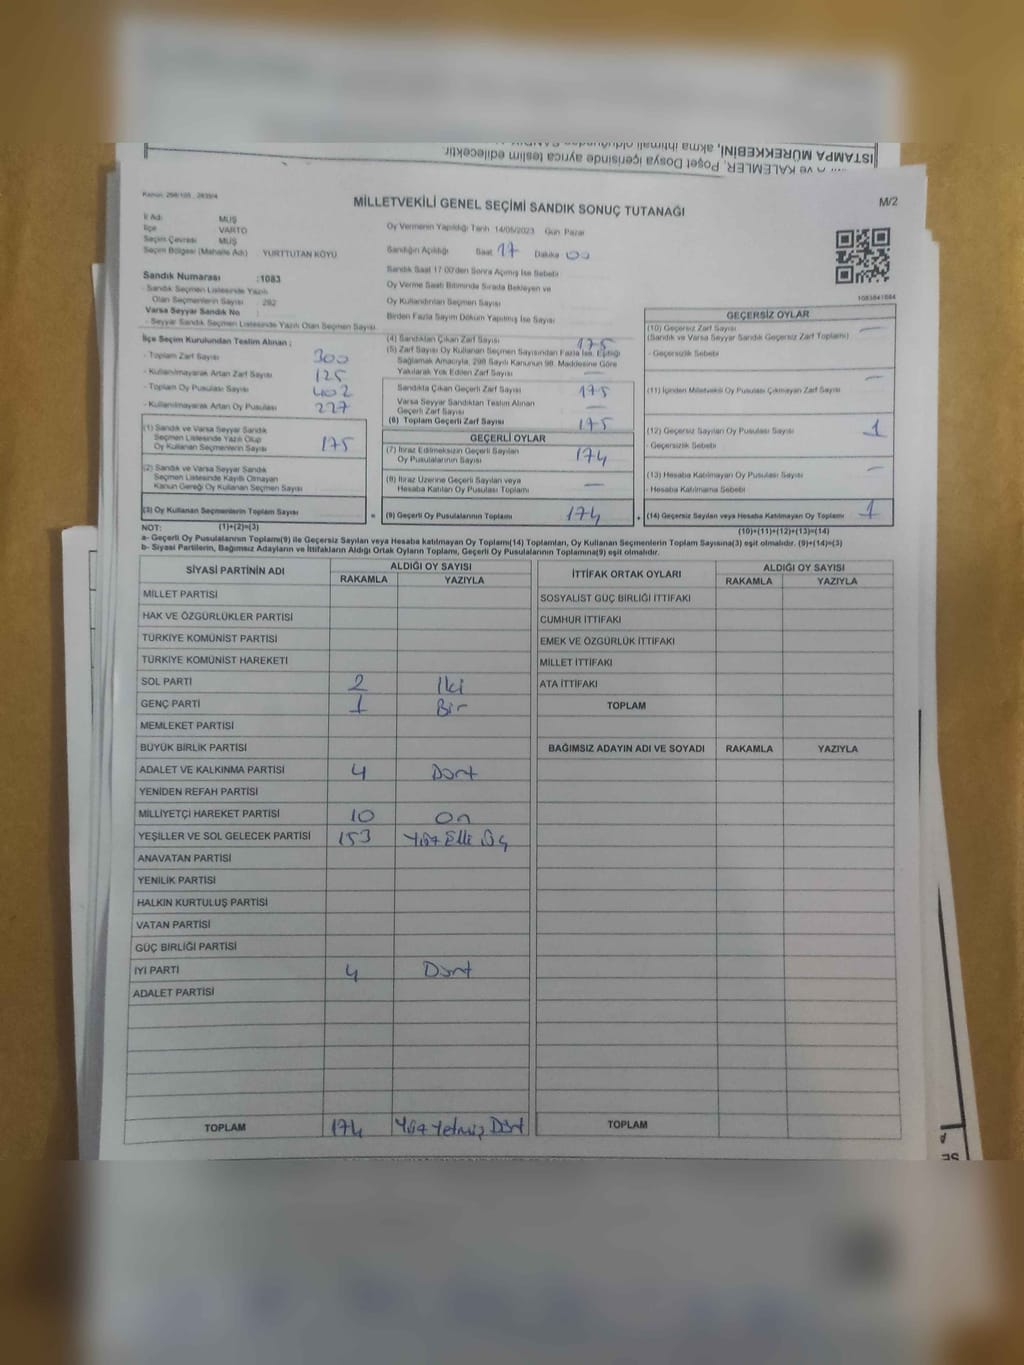 ISTAMPA MÜREKKEBİNİ, akma ihtimali olduğundan
ve KALEMLER, Poşet Dosya içerisinde ayrıca teslim edilecektir.
MİLLETVEKİLİ GENEL SEÇİMİ SANDIK SONUÇ TUTANAĞI
M/2
İl Adı: MUŞ
İlçe VARTO
Seçim Çevresi MUŞ
Seçim Bölgesi (Mahalle Adı) YURTTUTAN KÖYÜ
Oy Vermenin Yapıldığı Tarih 14/05/2023 Gün: Pazar
Sandığın Açıldığı Saat 17 Dakika 00
Sandık Saat 17:00'den Sonra Açılmış İse Sebebi
Oy Verme Saati Bitiminde Sırada Bekleyen ve
Oy Kullandırılan Seçmen Sayısı
Birden Fazla Sayım Döküm Yapılmış İse Sayısı
Sandık Numarası :1083
- Sandık Seçmen Listesinde Yazılı
Olan Seçmenlerin Sayısı : 282
Varsa Seyyar Sandık No
- Seyyar Sandık Seçmen Listesinde Yazılı Olan Seçmen Sayısı
İlçe Seçim Kurulundan Teslim Alınan ;
- Toplam Zarf Sayısı 300
- Kullanılmayarak Artan Zarf Sayısı 125
- Toplam Oy Pusulası Sayısı 402
- Kullanılmayarak Artan Oy Pusulası 227
(1) Sandık ve Varsa Seyyar Sandık
Seçmen Listesinde Yazılı Olup
Oy Kullanan Seçmenlerin Sayısı 175
(2) Sandık ve Varsa Seyyar Sandık
Seçmen Listesinde Kayıtlı Olmayan
Kanun Gereği Oy Kullanan Seçmen Sayısı
(3) Oy Kullanan Seçmenlerin Toplam Sayısı
(1)+(2)=(3)
(4) Sandıktan Çıkan Zarf Sayısı 175
(5) Zarf Sayısı Oy Kullanan Seçmen Sayısından Fazla İse, Eşitliği
Sağlamak Amacıyla, 298 Sayılı Kanunun 98. Maddesine Göre
Yakılarak Yok Edilen Zarf Sayısı —
Sandıkta Çıkan Geçerli Zarf Sayısı 175
Varsa Seyyar Sandıktan Teslim Alınan
Geçerli Zarf Sayısı —
(6) Toplam Geçerli Zarf Sayısı 175
GEÇERLİ OYLAR
(7) İtiraz Edilmeksizin Geçerli Sayılan
Oy Pusulalarının Sayısı 174
(8) İtiraz Üzerine Geçerli Sayılan veya
Hesaba Katılan Oy Pusulası Toplamı —
= (9) Geçerli Oy Pusulalarının Toplamı 174
GEÇERSİZ OYLAR
(10) Geçersiz Zarf Sayısı —
(Sandık ve Varsa Seyyar Sandık Geçersiz Zarf Toplamı)
- Geçersizlik Sebebi
(11) İçinden Milletvekili Oy Pusulası Çıkmayan Zarf Sayısı —
(12) Geçersiz Sayılan Oy Pusulası Sayısı 1
- Geçersizlik Sebebi
(13) Hesaba Katılmayan Oy Pusulası Sayısı —
- Hesaba Katılmama Sebebi
+ (14) Geçersiz Sayılan veya Hesaba Katılmayan Oy Toplamı 1
(10)+(11)+(12)+(13)=(14)
NOT:
a- Geçerli Oy Pusulalarının Toplamı(9) ile Geçersiz Sayılan veya Hesaba katılmayan Oy Toplamı(14) Toplamları, Oy Kullanan Seçmenlerin Toplam Sayısına(3) eşit olmalıdır. (9)+(14)=(3)
b- Siyasi Partilerin, Bağımsız Adayların ve İttifakların Aldığı Oy Ortak Oyların Toplamı, Geçerli Oy Pusulalarının Toplamına(9) eşit olmalıdır.
SİYASİ PARTİNİN ADI ALDIĞI OY SAYISI
RAKAMLA YAZIYLA
MİLLET PARTİSİ
HAK VE ÖZGÜRLÜKLER PARTİSİ
TÜRKİYE KOMÜNİST PARTİSİ
TÜRKİYE KOMÜNİST HAREKETİ
SOL PARTİ 2 İki
GENÇ PARTİ 1 Bir
MEMLEKET PARTİSİ
BÜYÜK BİRLİK PARTİSİ
ADALET VE KALKINMA PARTİSİ 4 Dört
YENİDEN REFAH PARTİSİ
MİLLİYETÇİ HAREKET PARTİSİ 10 On
YEŞİLLER VE SOL GELECEK PARTİSİ 153 Yüz Elli Üç
ANAVATAN PARTİSİ
YENİLİK PARTİSİ
HALKIN KURTULUŞ PARTİSİ
VATAN PARTİSİ
GÜÇ BİRLİĞİ PARTİSİ
İYİ PARTİ 4 Dört
ADALET PARTİSİ
TOPLAM 174 Yüz Yetmiş Dört
İTTİFAK ORTAK OYLARI ALDIĞI OY SAYISI
RAKAMLA YAZIYLA
SOSYALİST GÜÇ BİRLİĞİ İTTİFAKI
CUMHUR İTTİFAKI
EMEK VE ÖZGÜRLÜK İTTİFAKI
MİLLET İTTİFAKI
ATA İTTİFAKI
TOPLAM
BAĞIMSIZ ADAYIN ADI VE SOYADI RAKAMLA YAZIYLA
TOPLAM